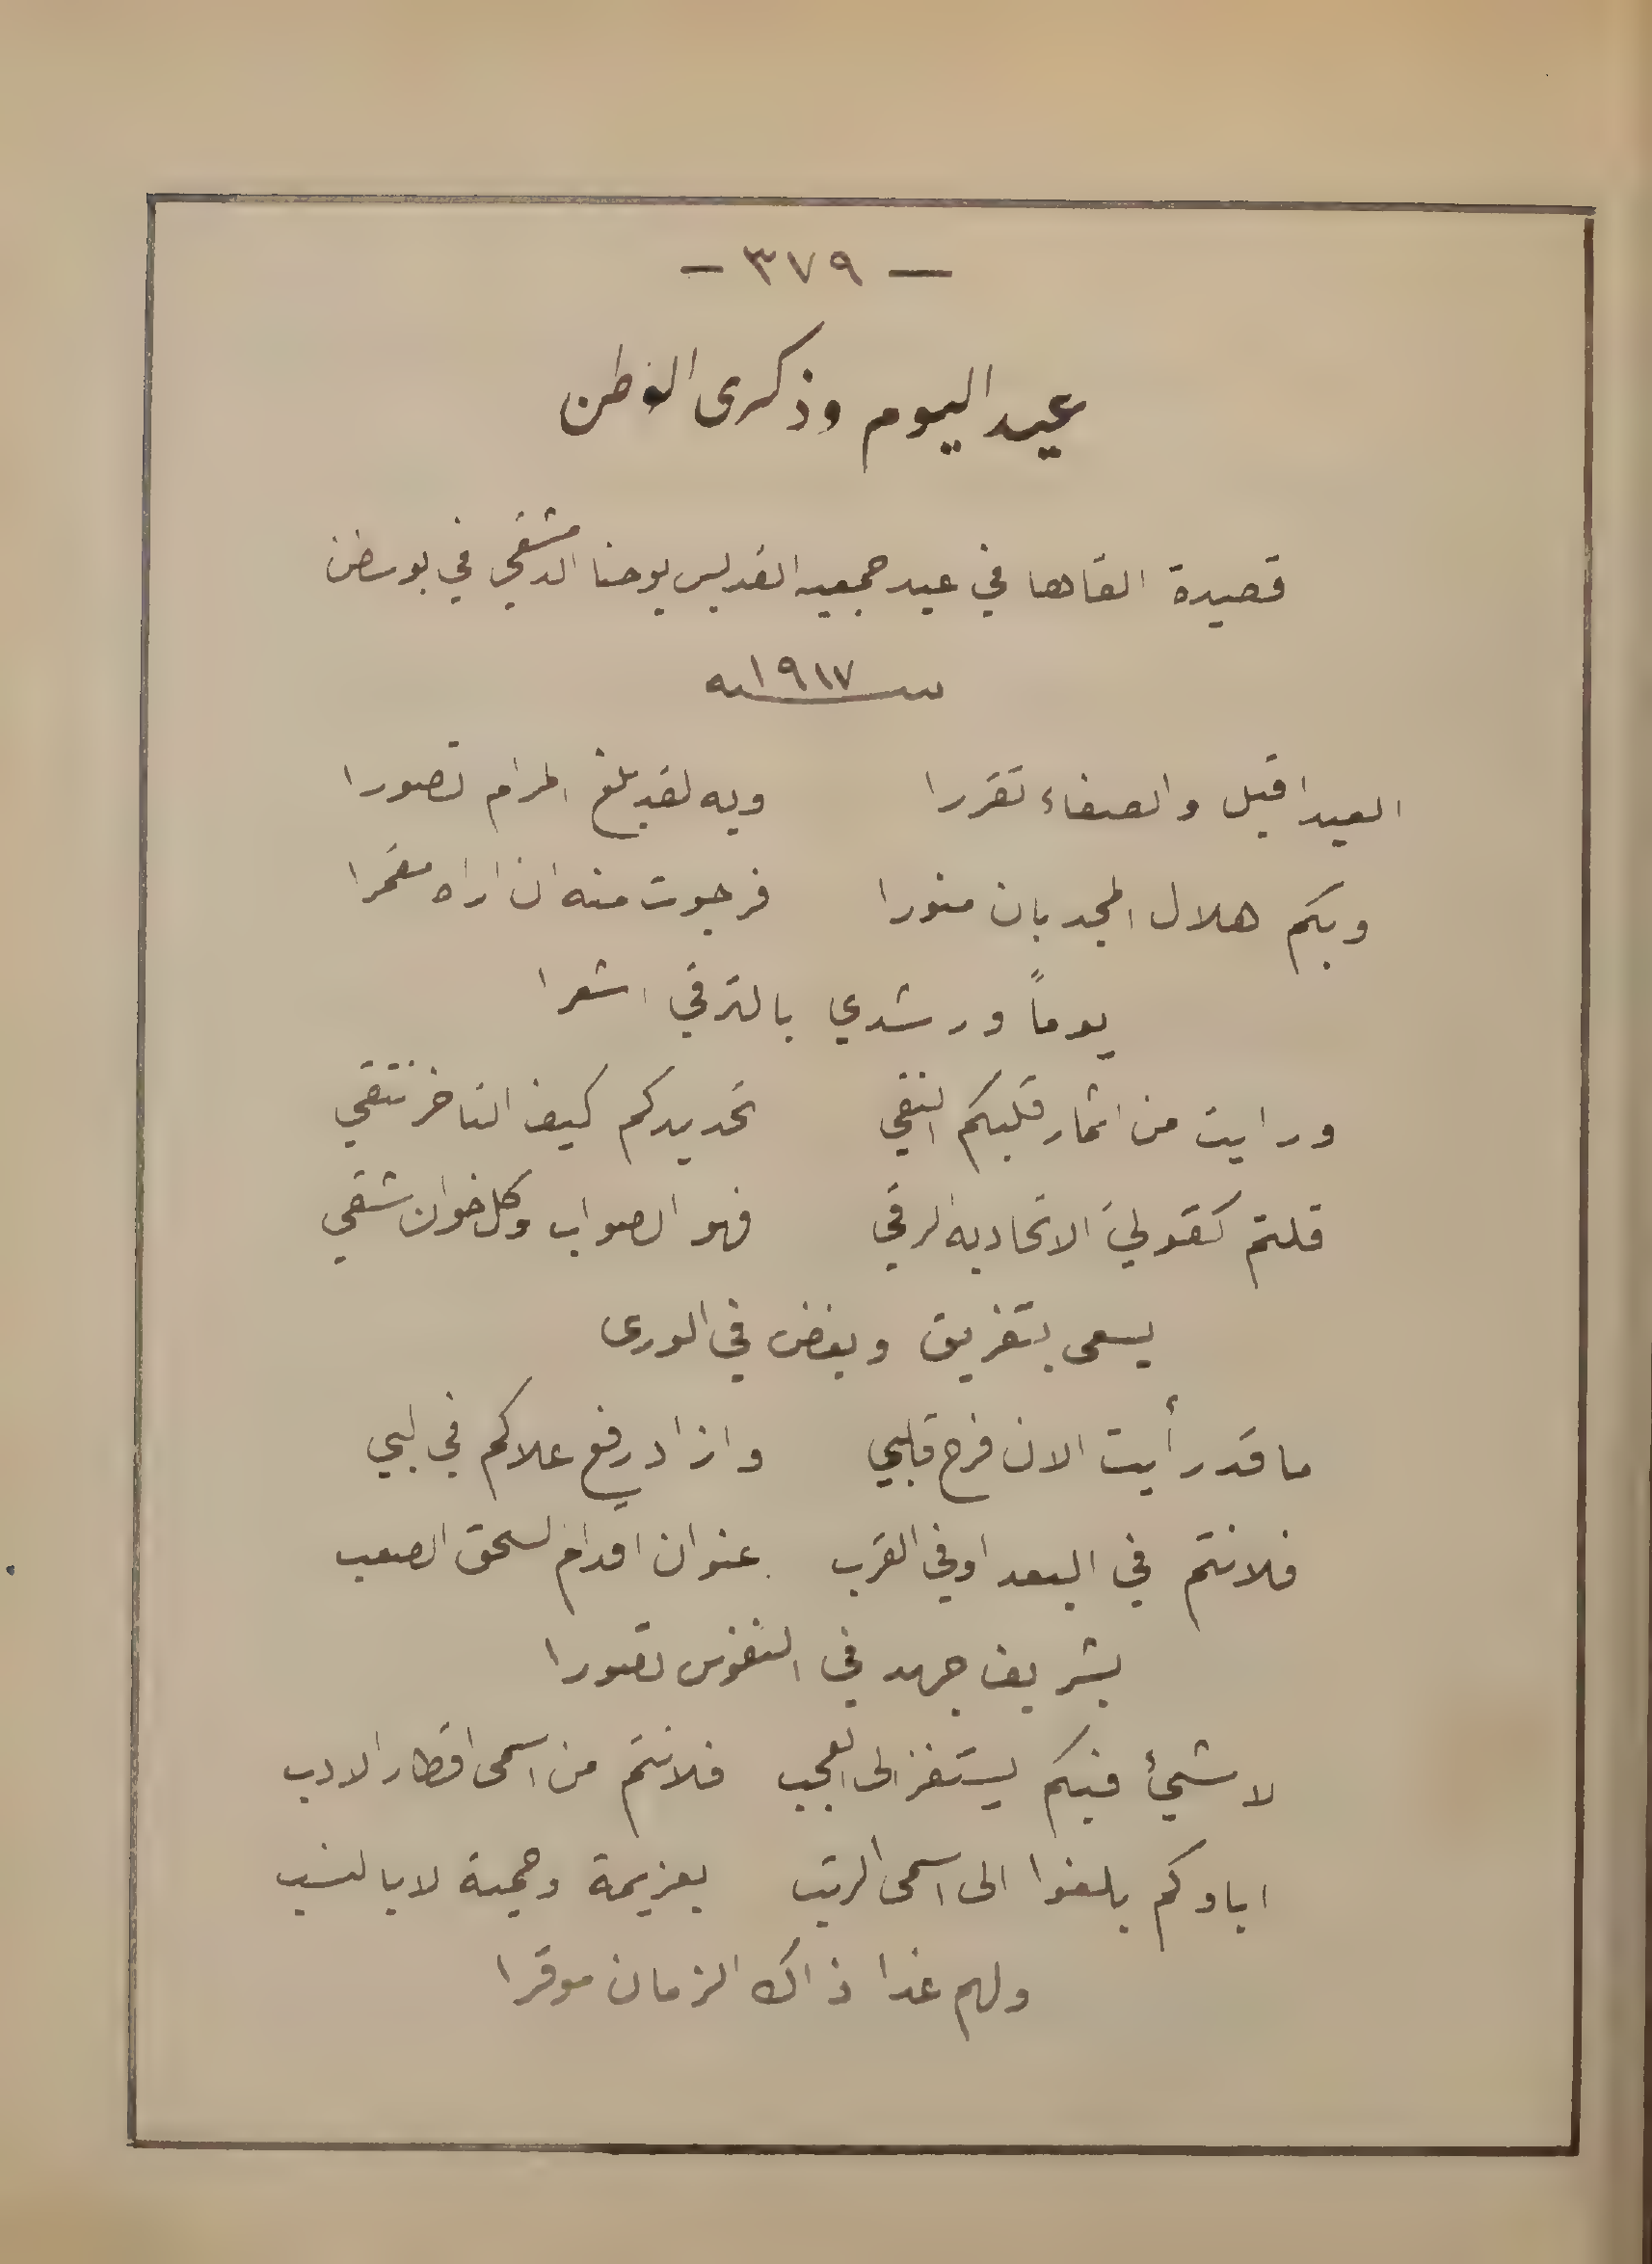 — ٣٧٩ —
عيد اليوم وذكرى الوطن
قصيدة القاها في عيد جمعيه القديس يوحنا الدمشقي في بوسطن
سنه ١٩١٧
العيد اقبل والصفاء تقررا وبه لقد بلغ المرام تصورا
وبكم هلال المجد بان منورا فرجوت منه ان اراه مقمرا
يوماً ورشدي بالترقي اشعرا
ورايت من اثمار قلبكم النقي تحديدكم كيف التاخر نتقي
قلتم كقولي الاتحاد به الرقي فهو الصواب وكل خوان شقي
يسعى بتفريق وبغض في الورى
ما قد رأيت الان فرح قلبي وازاد رفع علاكم في لبي
فلانتم في البعد او في القرب عنوان اقدام لسحق الصعب
بشريف جهد في النفوس تصورا
لا شيئ فيكم يستفز الى العجب فلانتم من اسمى اقطار الادب
اباوكم بلغوا الى اسمى الرتب بعزيمة وحمية لا بالنسب
ولهم غدا ذاك الزمان موقرا